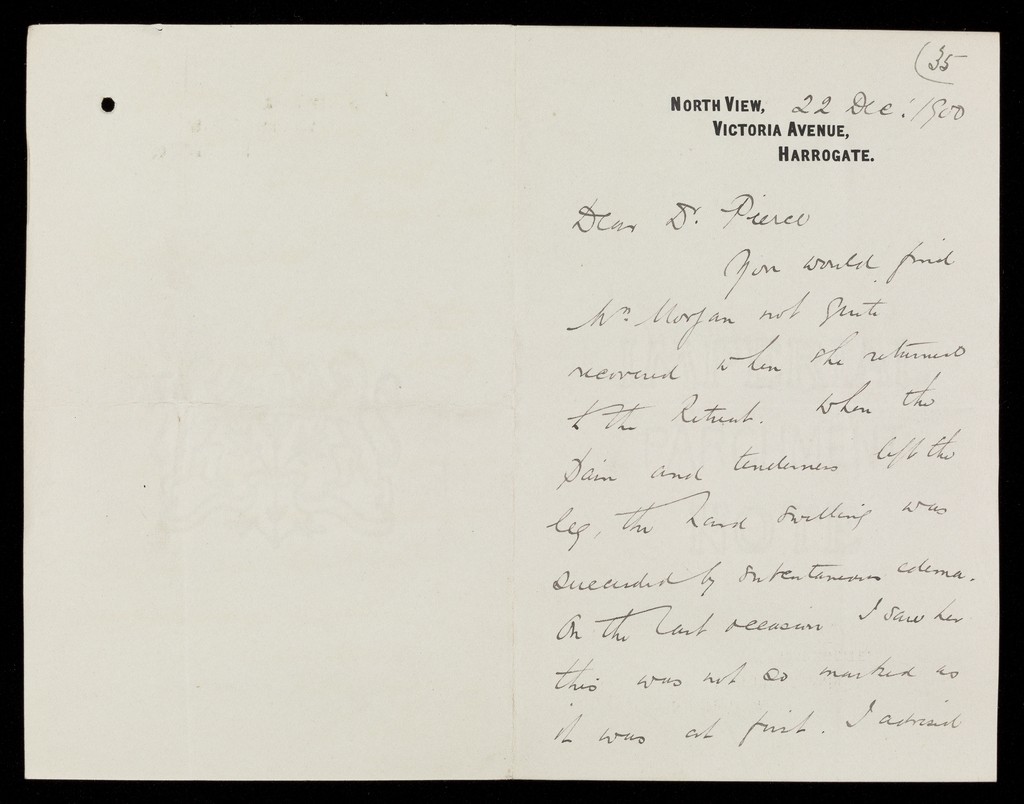 (35
NORTH VIEW, 22 Dec: 1900
VICTORIA AVENUE,
HARROGATE.
Dear Dr. Pierce
You would find
Mrs. Morgan not quite
recovered when she returned
to the Retreat. When the
pain and tenderness left the
leg, the hard swelling was
succeeded by subcutaneous edema.
On the last occasion I saw her
this was not so marked as
it was at first. I advised